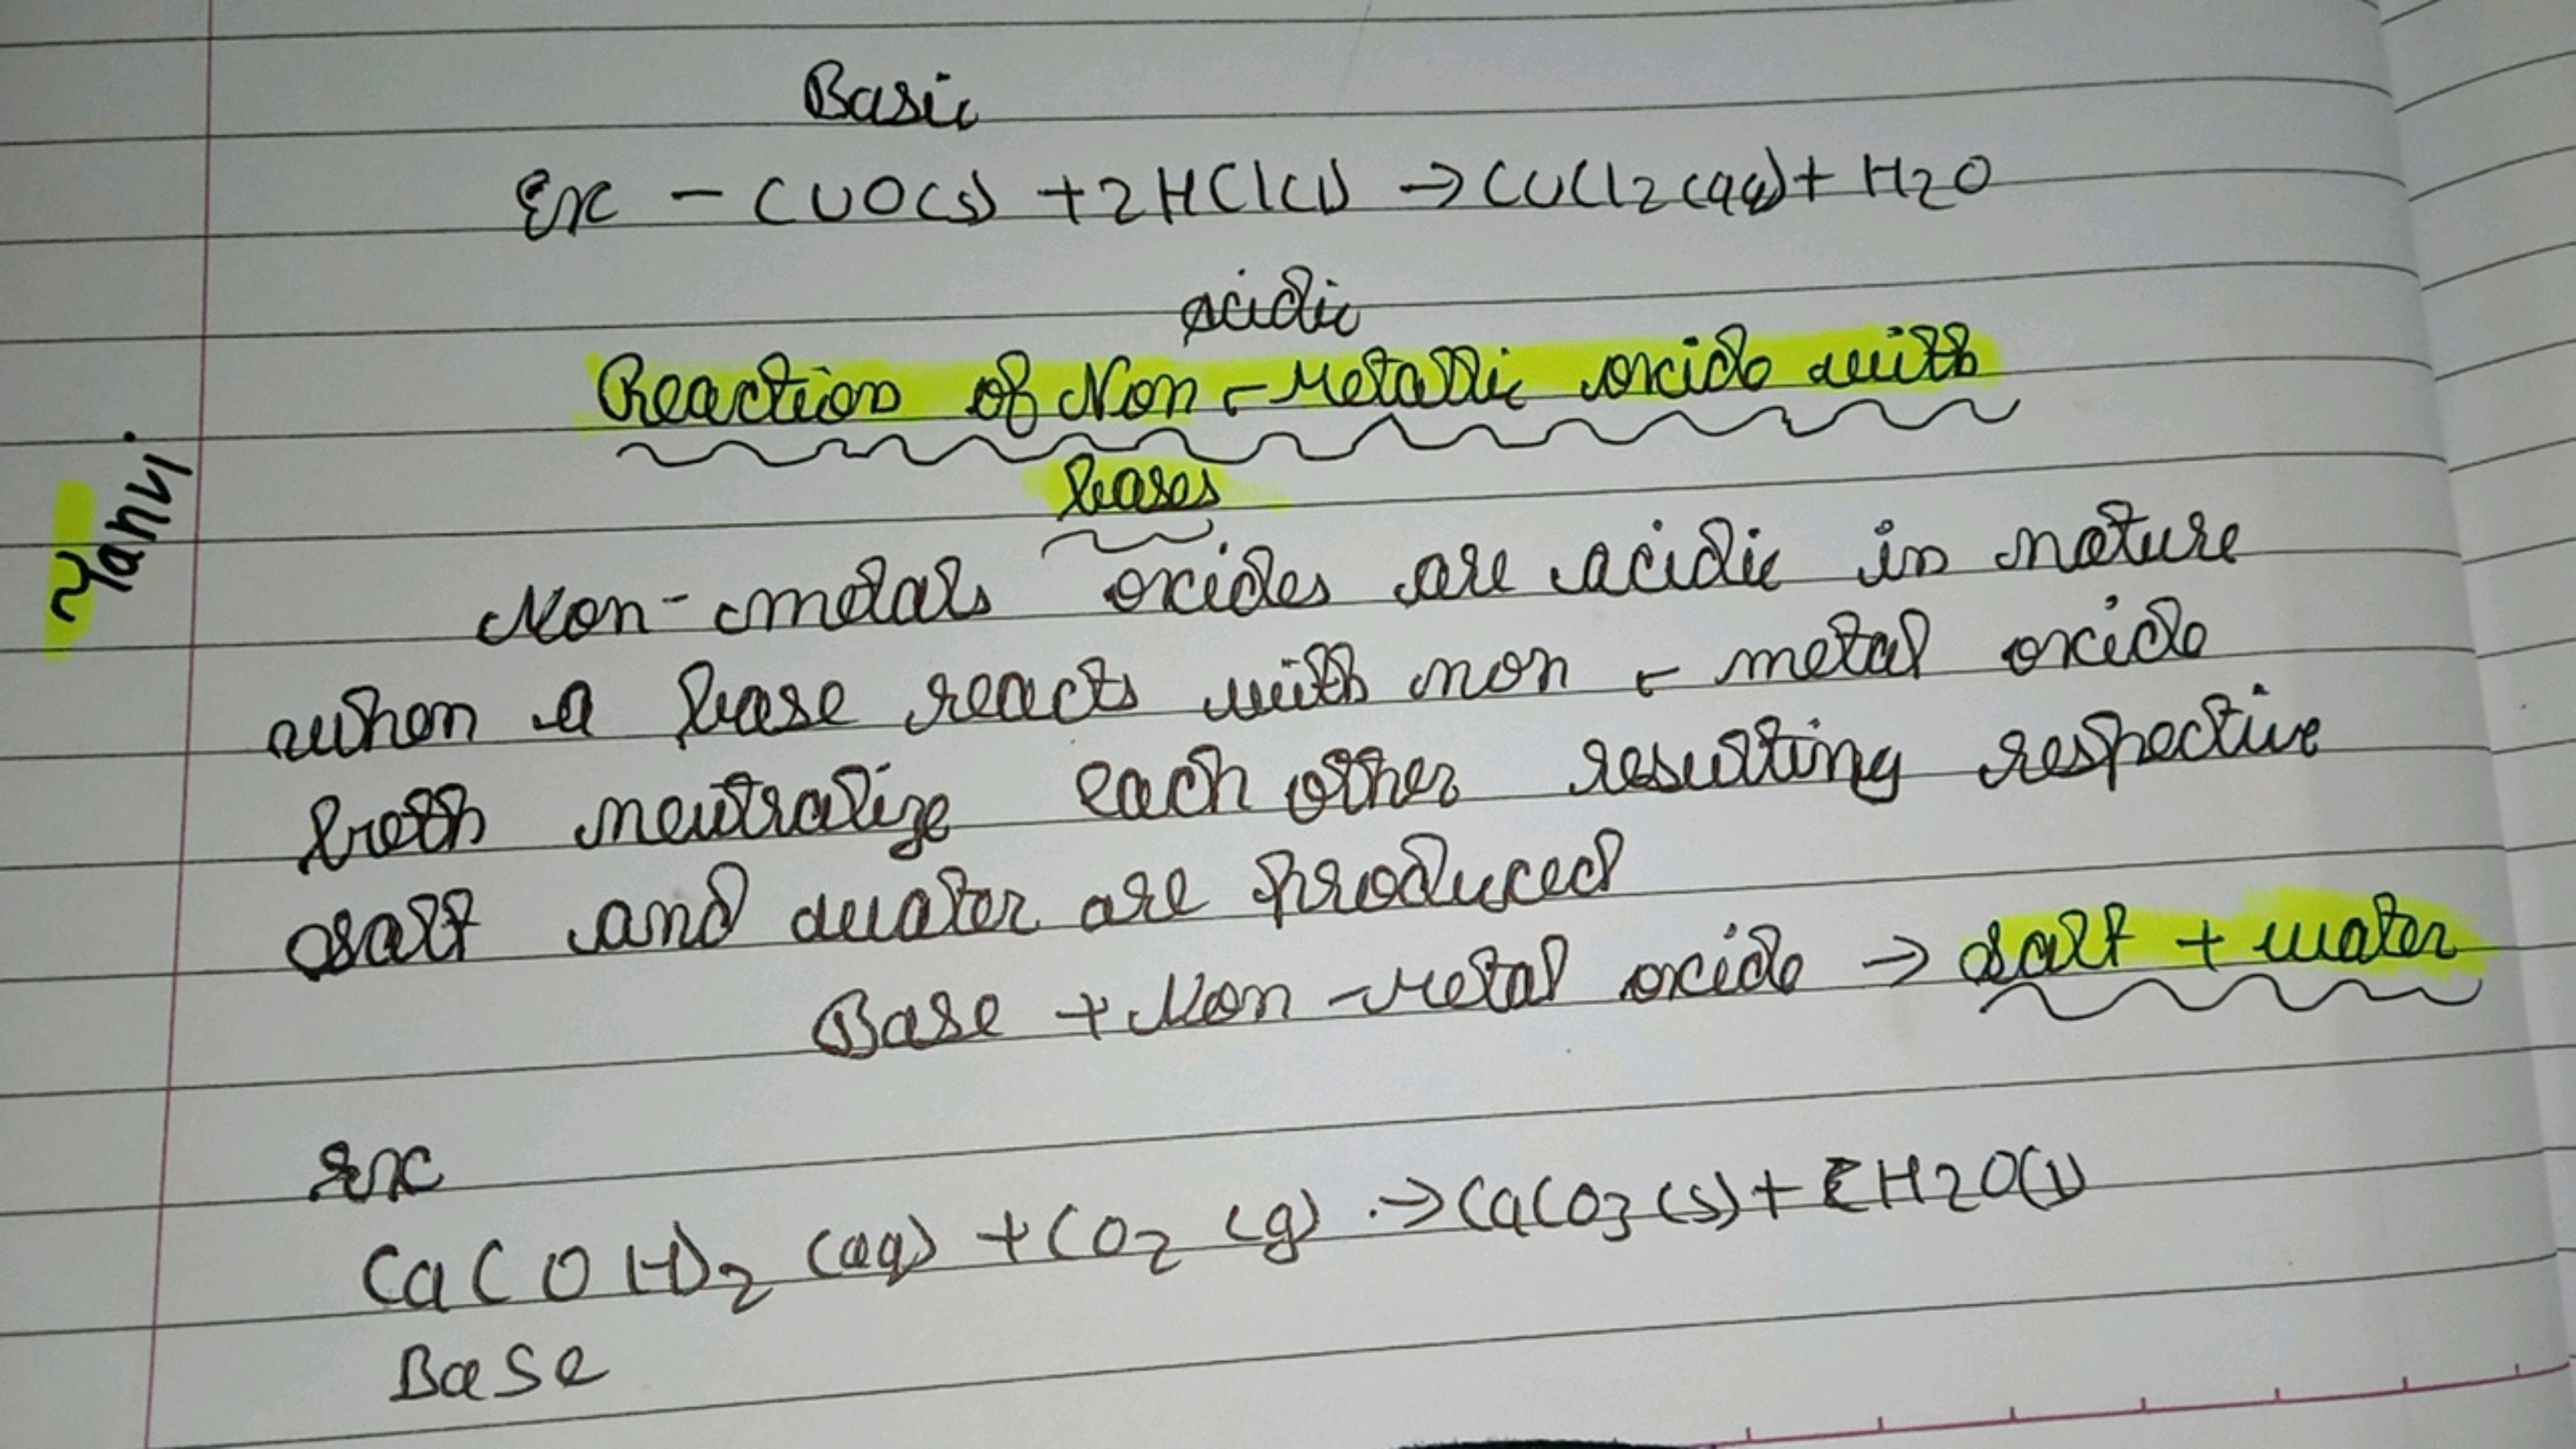 Basic
Ex - CuO(s) + 2HCl(l) → CuCl2(aq) + H2O
acidic
Reaction of Non-Metallic oxide with
bases
~Yanvi
Non-metals oxides are acidic in nature
when a base reacts with non-metal oxide
both neutralize each other resulting respective
salt and water are produced
Base + Non-Metal oxide → salt + water
Ex
Ca(OH)2 (aq) + CO2 (g) → CaCO3 (s) + H2O(l)
Base